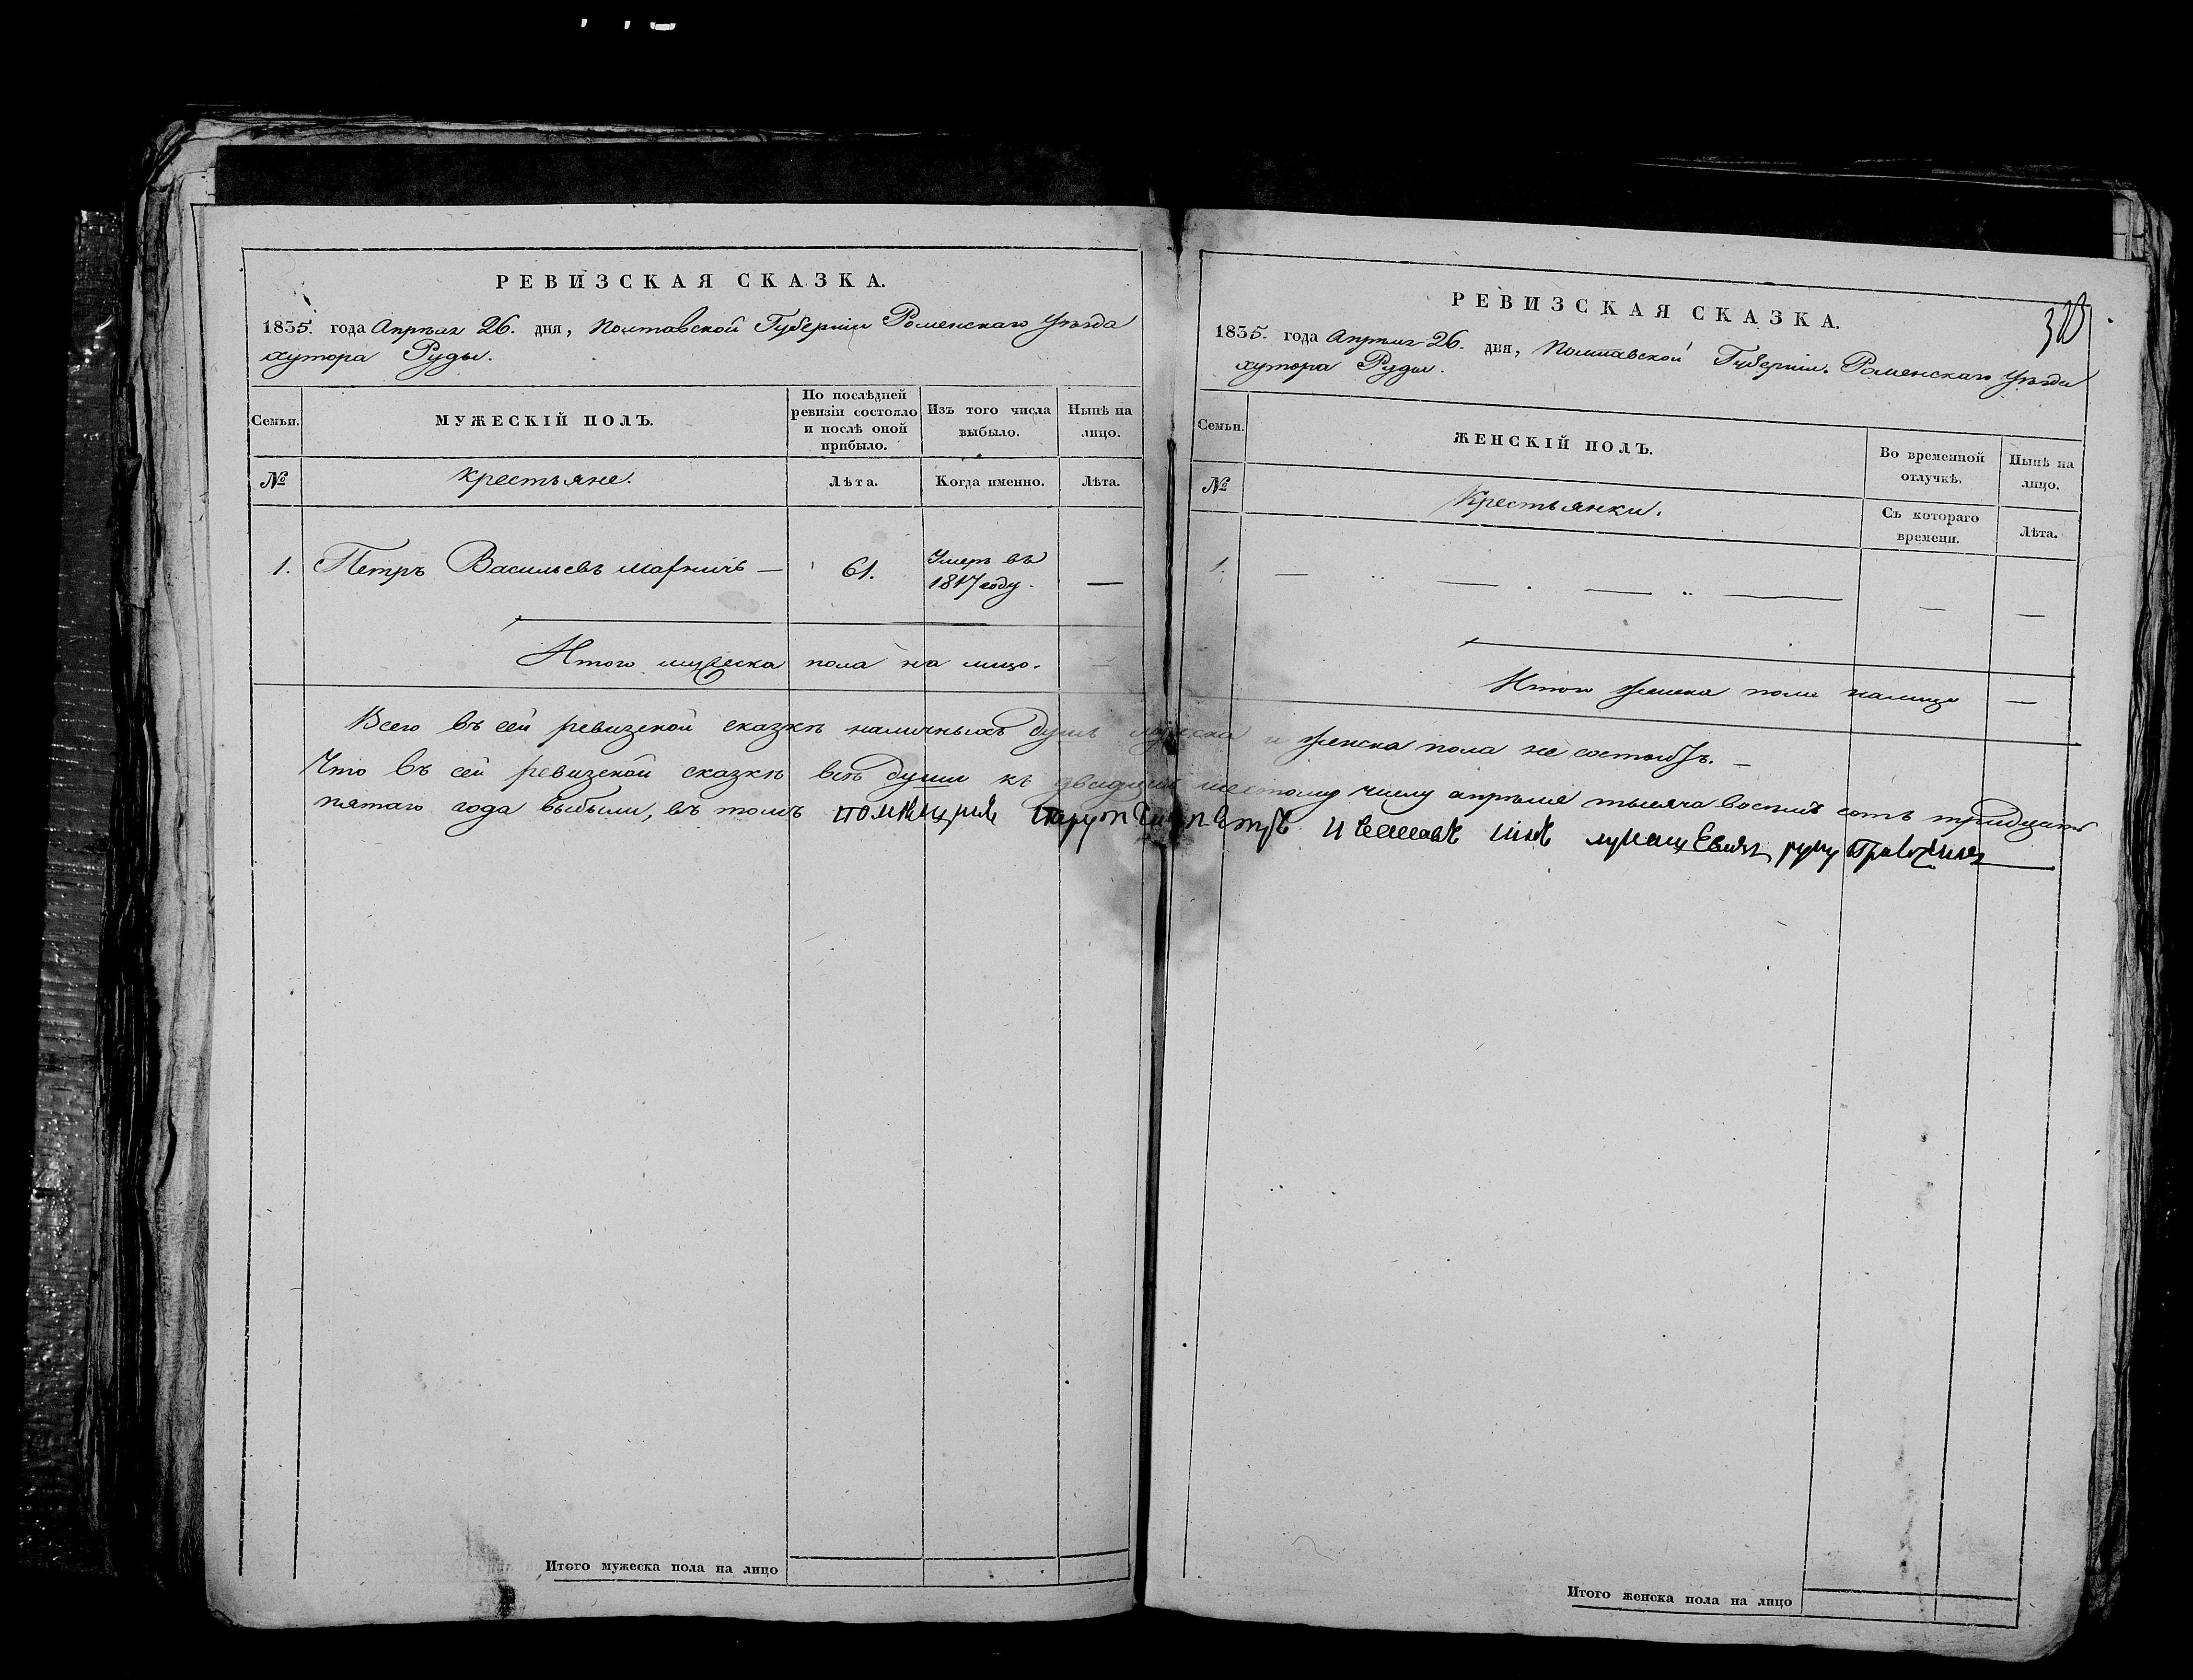 РЕВИЗСКАЯ СКАЗКА.
1835. года Апрѣля 26. дня, Полтавской Губерніи Роменскаго Уѣзда
хутора Руды.
Семьи.
МУЖЕСКІЙ ПОЛЪ.
По послѣдней
ревизіи состояло
и послѣ оной
прибыло.
Изъ того числа
выбыло.
Нынѣ на
лицо.
№
Крестьяне.
Лѣта.
Когда именно.
Лѣта.
1. Петръ Васильевъ — 61. Умеръ въ
1817 году. —
Итого мужеска пола на лицо. —
Всего въ сей ревизской сказкѣ наличныхъ душъ мужеска и женска пола не состоитъ. —
Что въ сей ревизской сказкѣ всѣ души къ двадцать шестому числу апрѣля тысяча восемь сотъ тридцать
пятаго года выбыли, въ томъ руку приложилъ
Итого мужеска пола на лицо
РЕВИЗСКАЯ СКАЗКА.
1835. года Апрѣля 26. дня, Полтавской Губерніи. Роменскаго Уѣзда
хутора Руды.
Семьи.
ЖЕНСКІЙ ПОЛЪ.
Во временной
отлучкѣ.
Нынѣ на
лицо.
№
Крестьянки.
Съ котораго
времени.
Лѣта.
1. — — — — — —
Итого женска пола налицо —
Итого женска пола на лицо